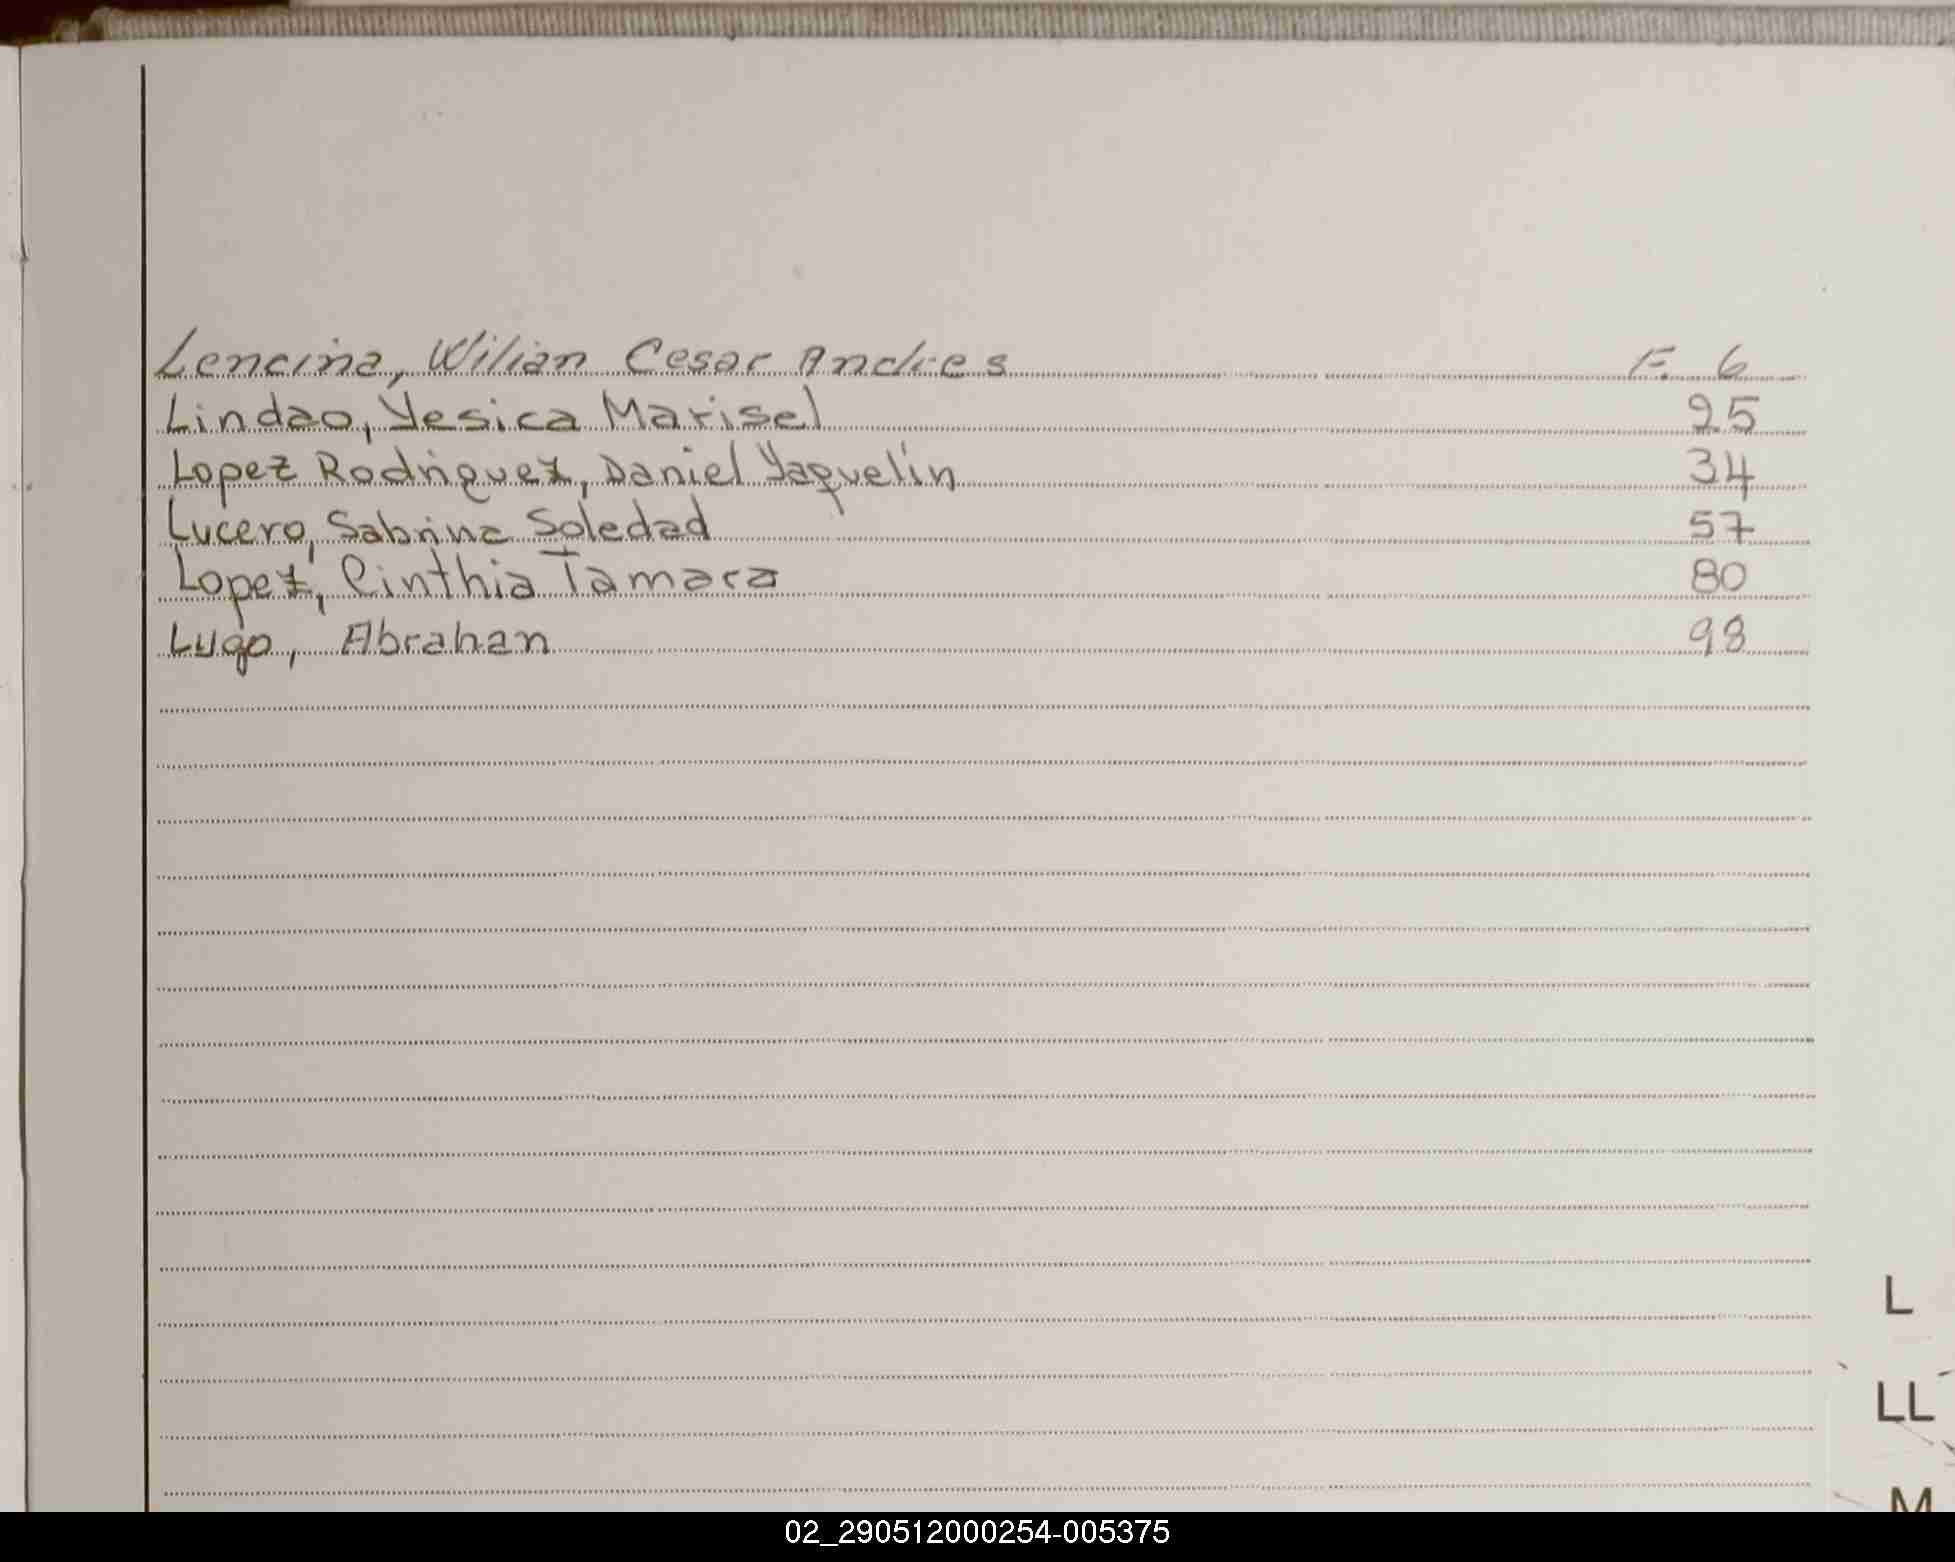 Lencina, Wilian Cesar Andres F. 6
Lindao, Yesica Marisel 25
Lopez Rodriguez, Daniel Yaquelin 34
Lucero, Sabrina Soledad 57
Lopez, Cinthia Tamara 80
Lugo, Abrahan 98
L
LL
M
02_290512000254-005375